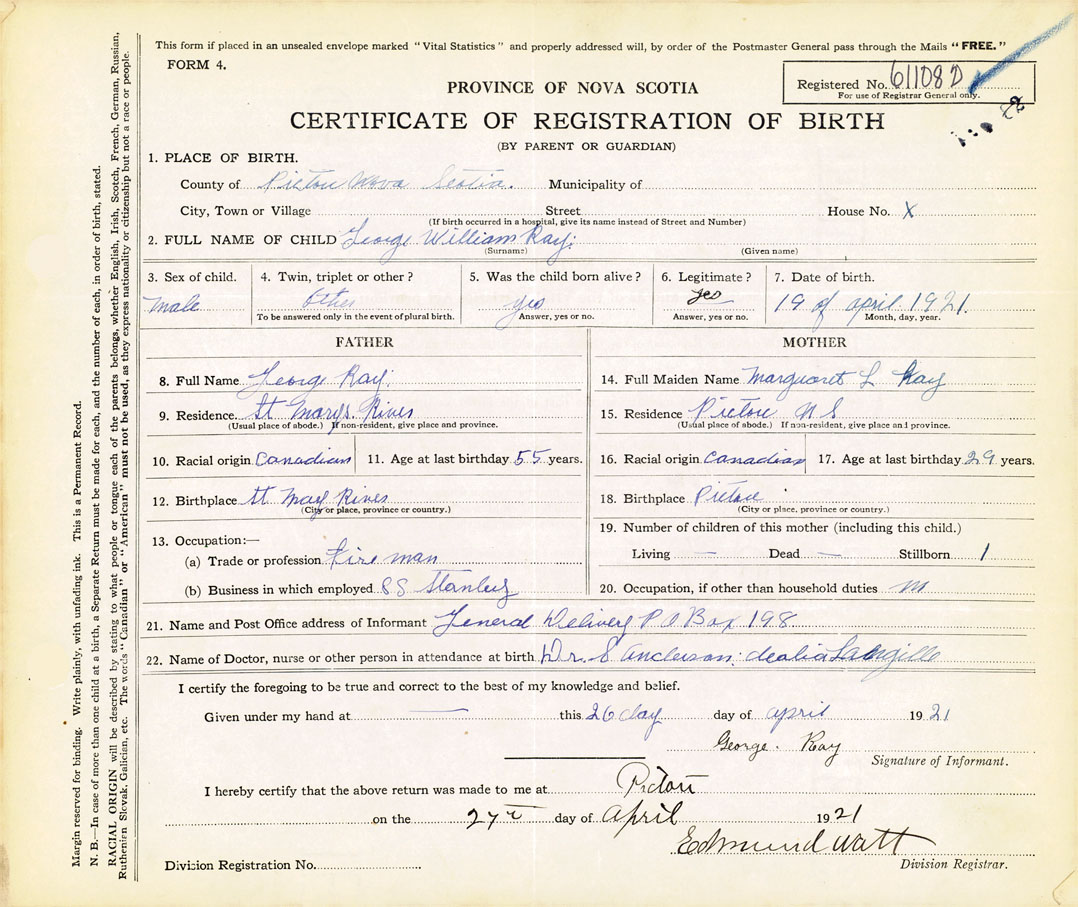 This form if placed in an unsealed envelope marked "Vital Statistics" and properly addressed will, by order of the Postmaster General pass through the Mails "FREE."
FORM 4.
Registered No. 61108 D
For use of Registrar General only.
PROVINCE OF NOVA SCOTIA
CERTIFICATE OF REGISTRATION OF BIRTH
(BY PARENT OR GUARDIAN)
22
1. PLACE OF BIRTH.
County of Pictou Nova Scotia. Municipality of
City, Town or Village Street House No. X
(If birth occurred in a hospital, give its name instead of Street and Number)
2. FULL NAME OF CHILD George William Ray.
(Surname) (Given name)
3. Sex of child. 4. Twin, triplet or other? 5. Was the child born alive? 6. Legitimate? 7. Date of birth.
Male Other yes yes 19 of april. 1921.
To be answered only in the event of plural birth. Answer, yes or no. Answer, yes or no. Month, day, year.
FATHER MOTHER
8. Full Name George Ray. 14. Full Maiden Name L Ray
9. Residence. St Marys. River 15. Residence Pictou N S
(Usual place of abode.) If non-resident, give place and province. (Usual place of abode.) If non-resident, give place and province.
10. Racial origin Canadian 11. Age at last birthday 55 years. 16. Racial origin Canadian 17. Age at last birthday 29 years.
12. Birthplace St May River 18. Birthplace Pictou
(City or place, province or country.) (City or place, province or country.)
13. Occupation:— 19. Number of children of this mother (including this child.)
(a) Trade or profession Fire man Living — Dead — Stillborn 1
(b) Business in which employed SS Stanley 20. Occupation, if other than household duties
21. Name and Post Office address of Informant General Delivery P O Box 198
22. Name of Doctor, nurse or other person in attendance at birth Dr. S Anderson: Langille
I certify the foregoing to be true and correct to the best of my knowledge and belief.
Given under my hand at — this 26 day day of april 1921
George. Ray
Signature of Informant.
I hereby certify that the above return was made to me at Pictou
on the 27th day of April 1921
Edmund Watt
Division Registration No. Division Registrar.
Margin reserved for binding. Write plainly, with unfading ink. This is a Permanent Record.
N. B.—In case of more than one child at a birth, a Separate Return must be made for each, and the number of each, in order of birth, stated.
RACIAL ORIGIN will be described by stating to what people or tongue each of the parents belongs, whether English, Irish, Scotch, French, German, Russian,
Ruthenian, Slovak, Galician, etc. The words "Canadian" or "American" must not be used, as they express nationality or citizenship but not a race or people.